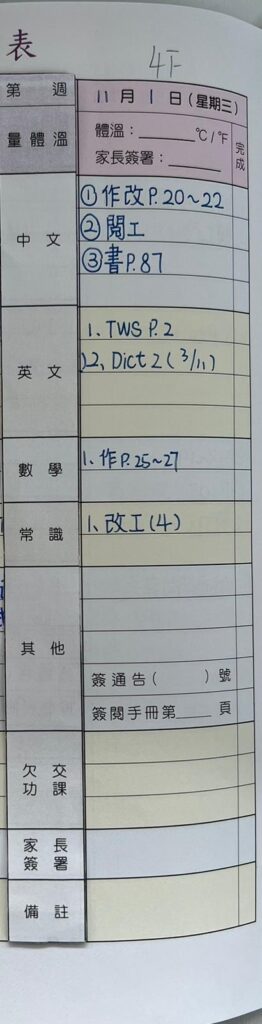 表
4下
第 週
11月1日(星期三)
量體溫
體溫：______℃/℉
家長簽署：______
完成
中文
①作改P.20~22
②閱工
③書P.87
英文
1、TWS P.2
2、Dict 2 (3/11)
數學
1、作P.25~27
常識
1、改工(4)
其他
簽通告( )號
簽閱手冊第____頁
欠交功課
家長簽署
備註